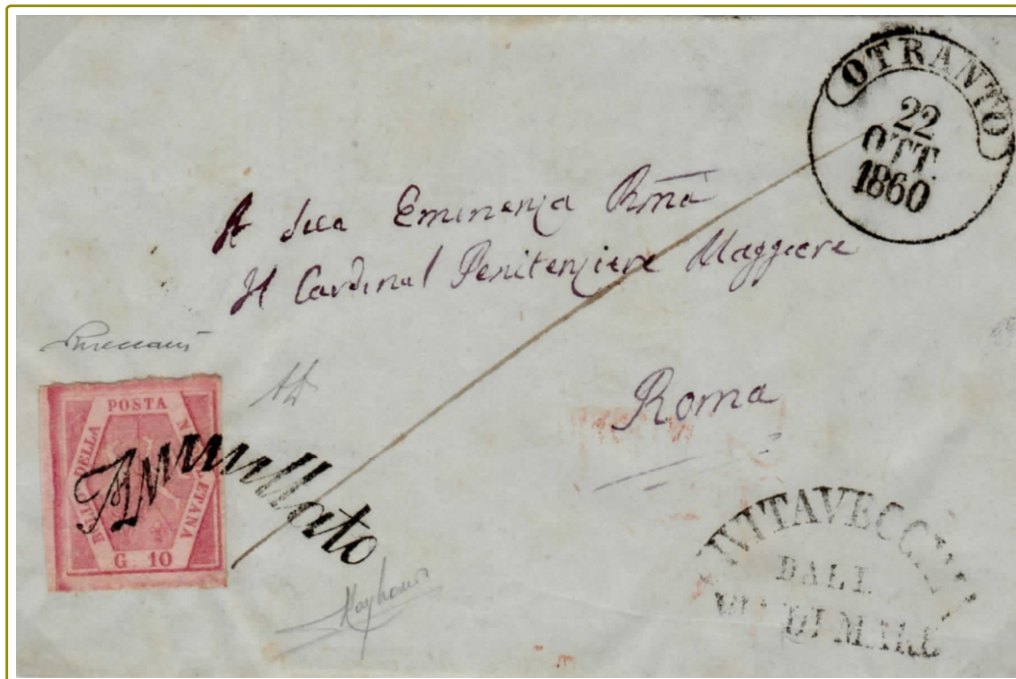 OTRANTO
22
OTT.
1860
A Sua Eminenza Rma
Il Cardinal Penitenziere Maggiore
Roma
BOLLO DELLA POSTA NAPOLETANA
G. 10
Annullato
CIVITAVECCHIA
DALLA
VIA DI MARE